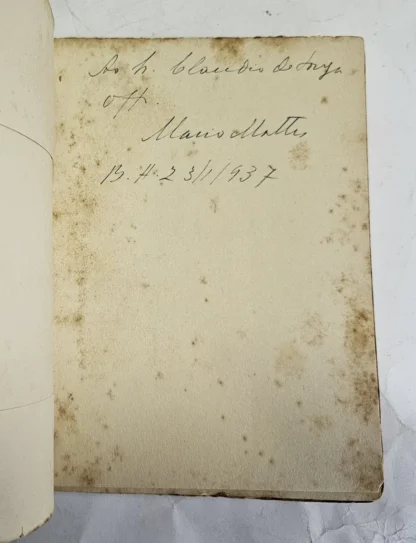 Ao Sr. Claudio de Souza
off.
Mario Mattos
B. H. 23/1/937